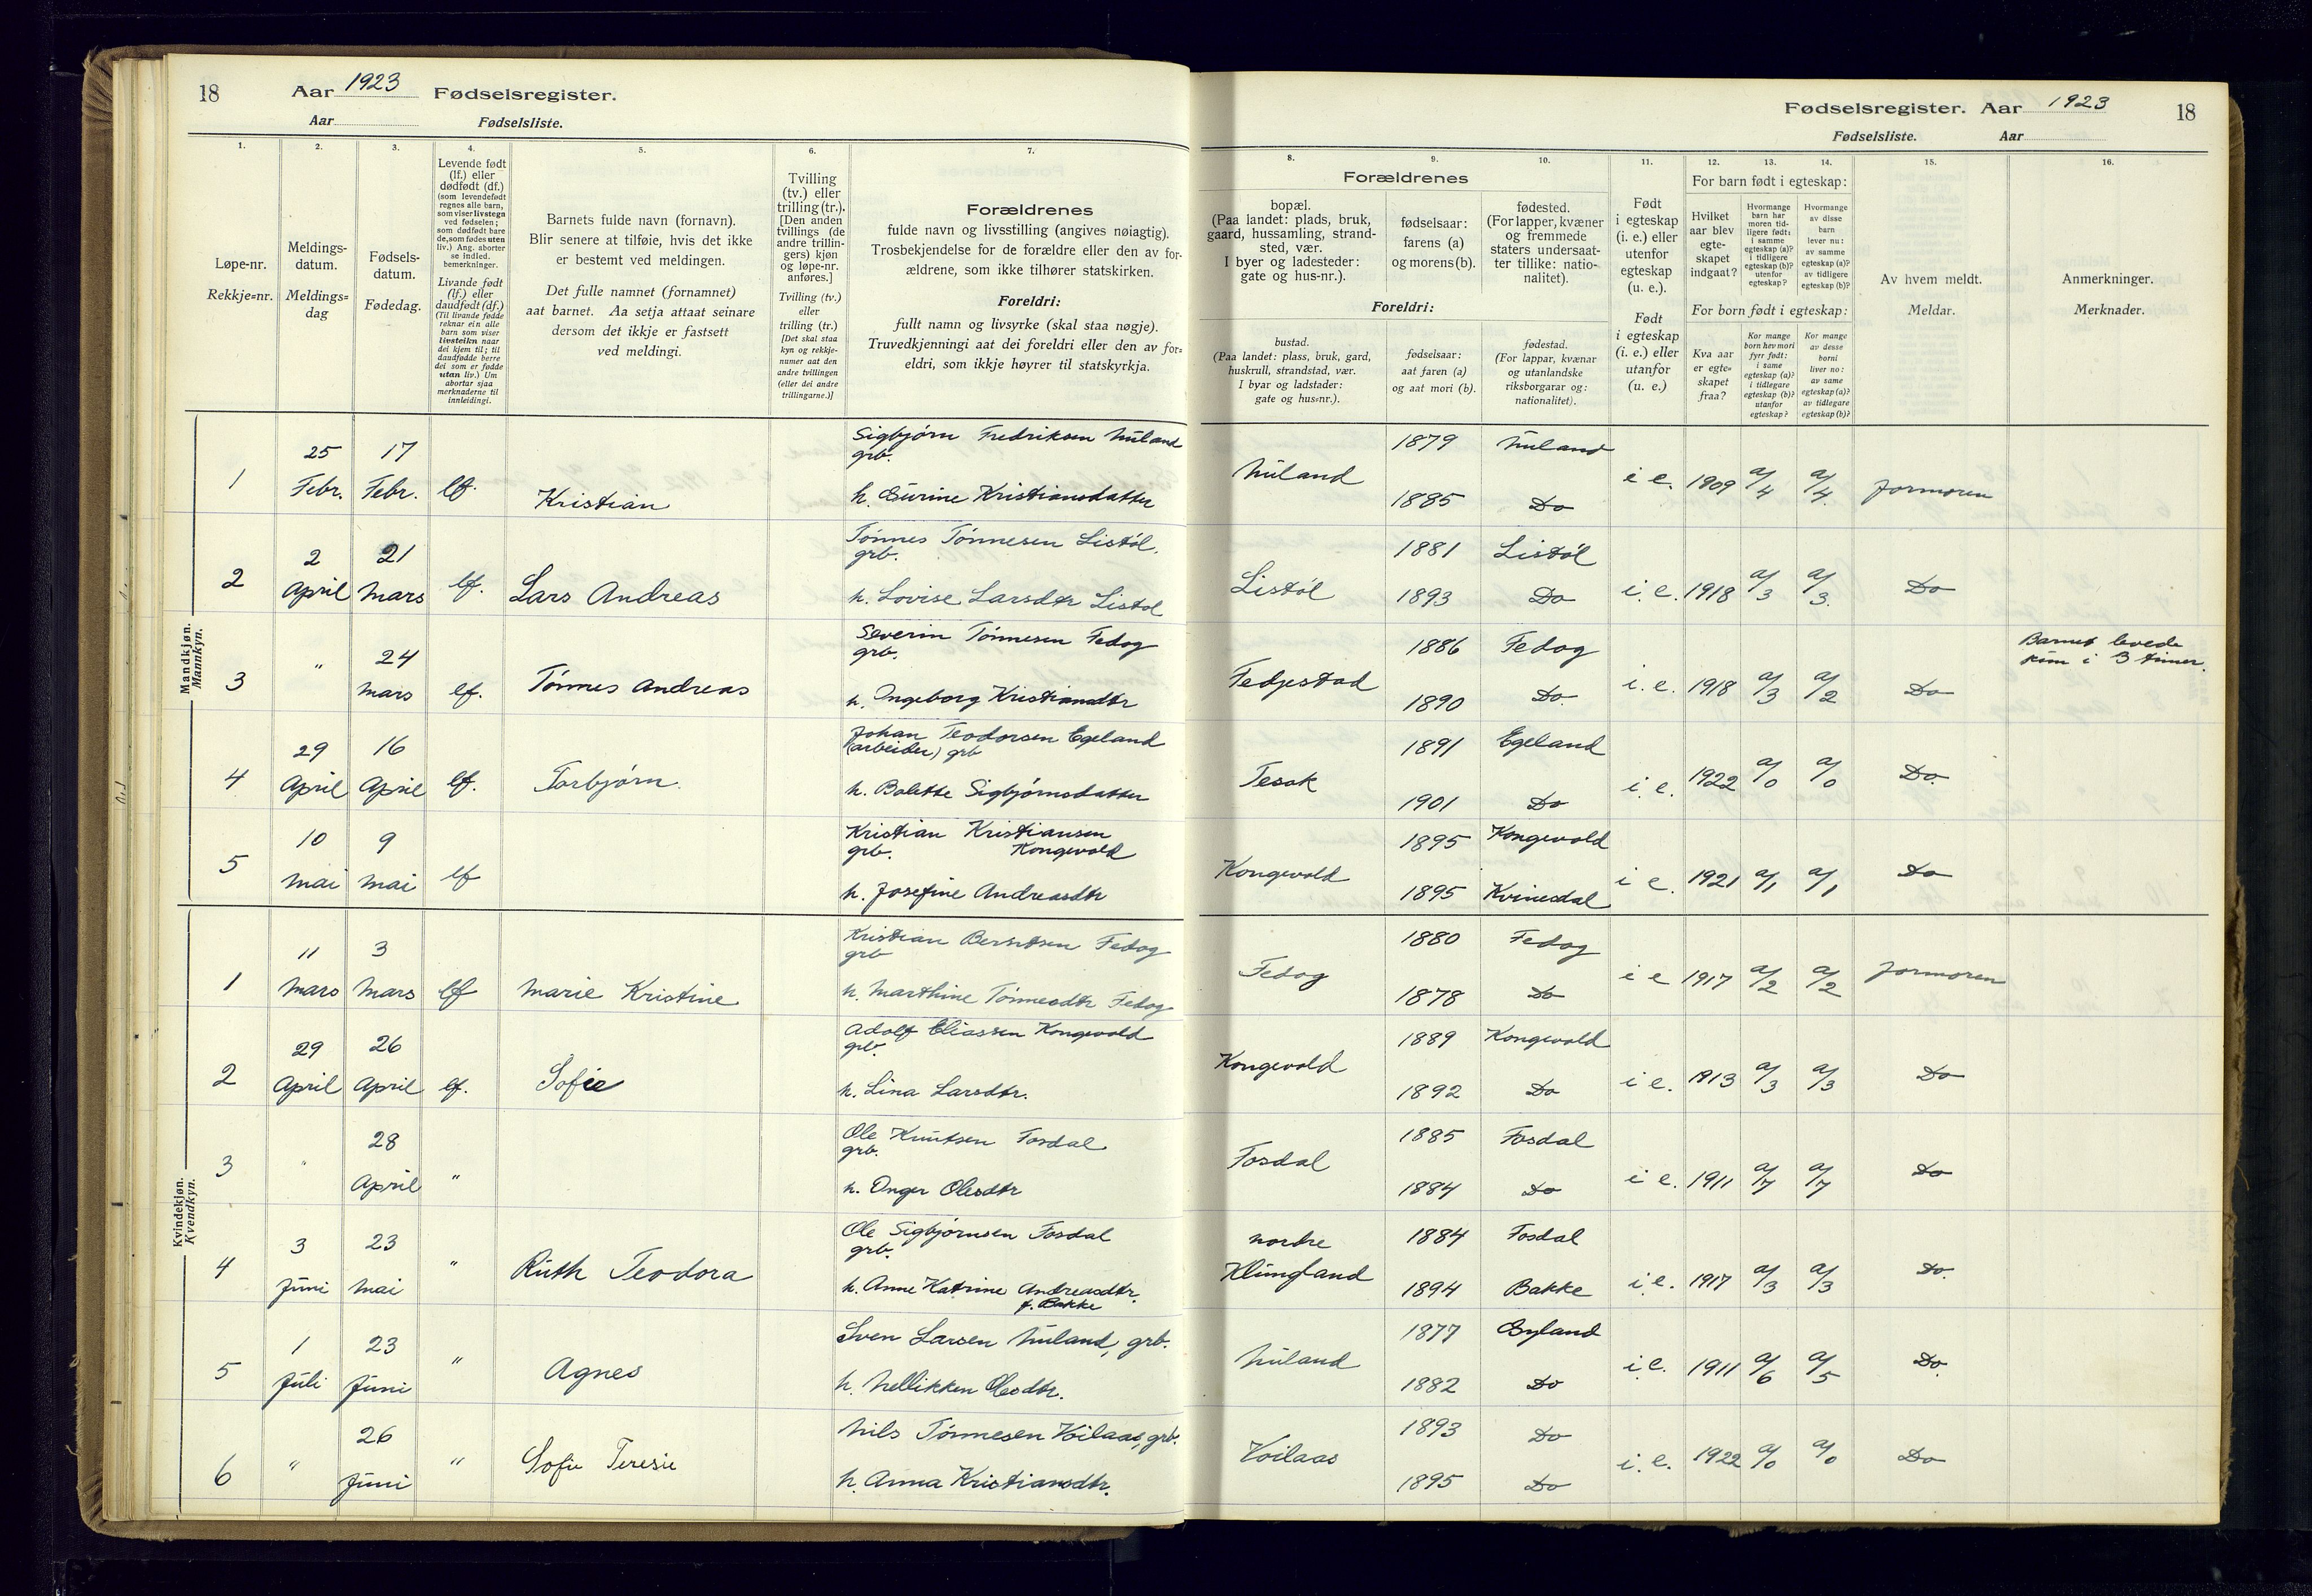 18 Aar 1923 Fødselsregister.
Aar Fødselsliste.
1. 2. 3. 4. 5. 6. 7.
Løpe-nr.
Rekkje=nr.
Meldings-
datum.
Meldings=
dag
Fødsels-
datum.
Fødedag.
Levende født
(lf.) eller
dødfødt (df.)
(som levendefødt
regnes alle barn,
som viser livstegn
ved fødselen;
som dødfødt bare
de, som fødes uten
liv.) Ang. aborter
se indled.
bemerkninger.
Livande født
(lf.) eller
daudfødt (df.)
(Til livande fødde
reknar ein alle
barn som viser
livsteikn naar
dei kjem til; til
daudfødde berre
dei som er fødde
utan liv.) Um
abortar sjaa
merknaderne til
innleidingi.
Barnets fulde navn (fornavn).
Blir senere at tilføie, hvis det ikke
er bestemt ved meldingen.
Det fulle namnet (fornamnet)
aat barnet. Aa setja attaat seinare
dersom det ikkje er fastsett
ved meldingi.
Tvilling
(tv.) eller
trilling (tr.).
[Den anden
tvillings (de
andre trillin-
gers) kjøn
og løpe-nr.
anføres.]
Tvilling (tv.)
eller
trilling (tr.)
[Det skal staa
kyn og rekkje-
numer aat den
andre tvillingen
(eller dei andre
trillingarne.)]
Forældrenes
fulde navn og livsstilling (angives nøiagtig).
Trosbekjendelse for de forældre eller den av for-
ældrene, som ikke tilhører statskirken.
Foreldri:
fullt namn og livsyrke (skal staa nøgje).
Truvedkjenningi aat dei foreldri eller den av for=
eldri, som ikkje høyrer til statskyrkja.
Mandkjøn.
Mannkyn.
1 25 Febr. 17 Febr. lf. Kristian
Sigbjørn Fredriksen Nuland
grb.
h. Surine Kristiansdatter
2 2 April 21 Mars lf. Lars Andreas
Tønnes Tønnesen Listøl.
grb.
h. Lovise Larsdtr Listøl
3 " 24 Mars lf. Tønnes Andreas
Severin Tønnesen Fedog
grb.
h. Ingeborg Kristiansdtr
4 29 April 16 April lf. Torbjørn.
Johan Teodorsen Egeland
(arbeider) grb
h. Bolette Sigbjørnsdatter
5 10 Mai 9 Mai lf
Kristian Kristiansen
grb. Kongevold
h. Josefine Andreasdtr
Kvindekjøn.
Kvendkyn.
1 11 Mars 3 Mars lf Marie Kristine
Kristian Berntsen Fedog
grb
h. Marthine Tønnesdtr Fedog
2 29 April 26 April lf. Sofie
Adolf Eliassen Kongevold
grb.
h. Lina Larsdtr.
3 " 28 April "
Ole Knutsen Fosdal
grb.
h. Inger Olesdtr
4 3 Juni 23 Mai " Ruth Teodora
Ole Sigbjørnsen Fosdal
grb.
h. Anne Katrine Andreasdtr.
f. Bakke
5 1 Juli 23 Juni " Agnes
Sven Larsen Nuland, grb.
h. Nellikken Olesdtr.
6 " 26 Juni " Sofie Teresie
Nils Tønnesen Voilaas, grb.
h. Anna Kristiansdtr.
Fødselsregister. Aar 1923 18
Fødselsliste. Aar
8. 9. 10. 11. 12. 13. 14. 15. 16.
Forældrenes
bopæl.
(Paa landet: plads, bruk,
gaard, hussamling, strand-
sted, vær.
I byer og ladesteder:
gate og hus-nr.).
fødselsaar:
farens (a)
og morens (b).
fødested.
(For lapper, kvæner
og fremmede
staters undersaat-
ter tillike: natio-
nalitet).
Foreldri:
bustad.
(Paa landet: plass, bruk, gard,
huskrull, strandstad, vær.
I byar og ladstader:
gate og hus=nr.).
fødselsaar:
aat faren (a)
og aat mori (b).
fødestad.
(For lappar, kvænar
og utanlandske
riksborgarar og:
nationalitet).
Født
i egteskap
(i. e.) eller
utenfor
egteskap
(u. e.).
Født
i egteskap
(i. e.) eller
utanfor
(u. e.)
For barn født i egteskap:
Hvilket
aar blev
egte-
skapet
indgaat?
Hvormange
barn har
moren tid-
ligere født:
i samme
egteskap (a)?
i tidligere
egteskap (b)?
utenfor
egteskap?
Hvormange
av disse
barn
lever nu:
av samme
egteskap (a)?
av tidligere
egteskap (b)?
For born født i egteskap:
Kva aar
er egte=
skapet
fraa?
Kor mange
born hev mori
fyrr født:
i same
egteskap (a)?
i tidlegare
egteskap (b)?
utanfor
egteskap?
Kor mange
av desse
borni
liver no:
av same
egteskap (a)?
av tidlegare
egteskap (b)?
Av hvem meldt.
Meldar.
Anmerkninger.
Merknader.
Nuland 1879 Nuland
1885 Do i e. 1909 a/4 a/4. Jormoren
Listøl 1881 Listøl
1893 Do i. e. 1918 a/3 a/3. Do
Fedjestad 1886 Fedog
1890 Do. i. e. 1918 a/3 a/2 Do
Barnet levede
kun i 3 timer.
Tesak 1891 Egeland
1901 Do i. e. 1922 a/0 a/0 Do.
Kongevold 1895 Kongevold
1895 Kvinesdal i e. 1921 a/1 a/1 Do
Fedog 1880 Fedog
1878 Do i e 1917 a/2 a/2 Jormoren
Kongevold 1889 Kongevold
1892 Do i e. 1913 a/3 a/3 Do
Fosdal 1885 Fosdal
1884 Do i e. 1911 a/7 a/7 Do
nordre
Klungland 1884 Fosdal
1894 Bakke i. e. 1917 a/3 a/3 Do.
Nuland 1877 Gyland
1882 Do i. e. 1911 a/6 a/5 Do.
Voilaas 1893 Do
1895 Do i. e. 1922 a/0 a/0 Do